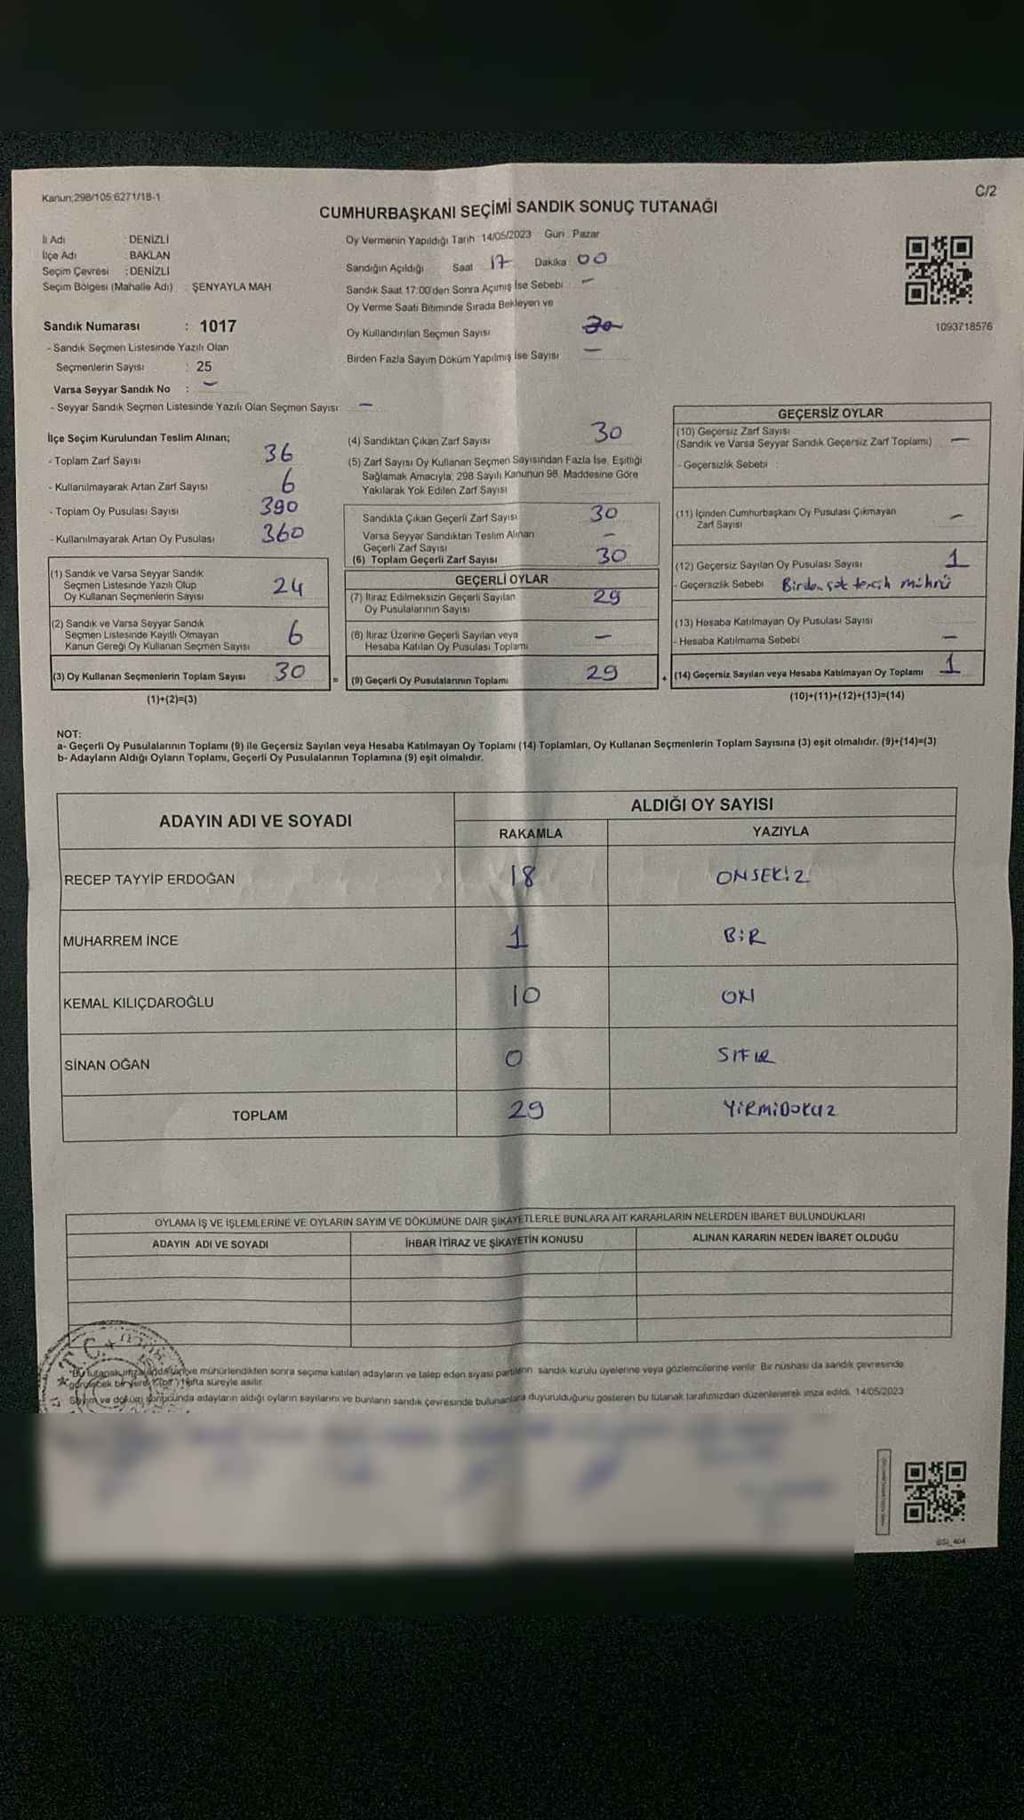 Kanun:298/105:6271/18-1
C/2
CUMHURBAŞKANI SEÇİMİ SANDIK SONUÇ TUTANAĞI
İl Adı : DENİZLİ
İlçe Adı : BAKLAN
Seçim Çevresi : DENİZLİ
Seçim Bölgesi (Mahalle Adı) : ŞENYAYLA MAH
Sandık Numarası : 1017
- Sandık Seçmen Listesinde Yazılı Olan
Seçmenlerin Sayısı : 25
Varsa Seyyar Sandık No : —
- Seyyar Sandık Seçmen Listesinde Yazılı Olan Seçmen Sayısı : —
Oy Vermenin Yapıldığı Tarih 14/05/2023 Gün : Pazar
Sandığın Açıldığı Saat 17 Dakika 00
Sandık Saat 17:00'den Sonra Açımış İse Sebebi : —
Oy Verme Saati Bitiminde Sırada Bekleyen ve
Oy Kullandırılan Seçmen Sayısı
Birden Fazla Sayım Döküm Yapılmış İse Sayısı —
1093718576
İlçe Seçim Kurulundan Teslim Alınan;
- Toplam Zarf Sayısı 36
- Kullanılmayarak Artan Zarf Sayısı 6
- Toplam Oy Pusulası Sayısı 390
- Kullanılmayarak Artan Oy Pusulası 360
(1) Sandık ve Varsa Seyyar Sandık
Seçmen Listesinde Yazılı Olup
Oy Kullanan Seçmenlerin Sayısı 24
(2) Sandık ve Varsa Seyyar Sandık
Seçmen Listesinde Kayıtlı Olmayan
Kanun Gereği Oy Kullanan Seçmen Sayısı 6
(3) Oy Kullanan Seçmenlerin Toplam Sayısı 30
(1)+(2)=(3)
(4) Sandıktan Çıkan Zarf Sayısı 30
(5) Zarf Sayısı Oy Kullanan Seçmen Sayısından Fazla İse, Eşitliği
Sağlamak Amacıyla, 298 Sayılı Kanunun 98. Maddesine Göre
Yakılarak Yok Edilen Zarf Sayısı
Sandıkta Çıkan Geçerli Zarf Sayısı 30
Varsa Seyyar Sandıktan Teslim Alınan
Geçerli Zarf Sayısı —
(6) Toplam Geçerli Zarf Sayısı 30
=
GEÇERLİ OYLAR
(7) İtiraz Edilmeksizin Geçerli Sayılan
Oy Pusulalarının Sayısı 29
(8) İtiraz Üzerine Geçerli Sayılan veya
Hesaba Katılan Oy Pusulası Toplamı —
(9) Geçerli Oy Pusulalarının Toplamı 29
+
GEÇERSİZ OYLAR
(10) Geçersiz Zarf Sayısı
(Sandık ve Varsa Seyyar Sandık Geçersiz Zarf Toplamı) —
- Geçersizlik Sebebi :
(11) İçinden Cumhurbaşkanı Oy Pusulası Çıkmayan
Zarf Sayısı —
(12) Geçersiz Sayılan Oy Pusulası Sayısı 1
- Geçersizlik Sebebi : Birden çok tercih mührü
(13) Hesaba Katılmayan Oy Pusulası Sayısı
- Hesaba Katılmama Sebebi : —
(14) Geçersiz Sayılan veya Hesaba Katılmayan Oy Toplamı 1
(10)+(11)+(12)+(13)=(14)
NOT:
a- Geçerli Oy Pusulalarının Toplamı (9) ile Geçersiz Sayılan veya Hesaba Katılmayan Oy Toplamı (14) Toplamları, Oy Kullanan Seçmenlerin Toplam Sayısına (3) eşit olmalıdır. (9)+(14)=(3)
b- Adayların Aldığı Oyların Toplamı, Geçerli Oy Pusulalarının Toplamına (9) eşit olmalıdır.
ADAYIN ADI VE SOYADI ALDIĞI OY SAYISI
RAKAMLA YAZIYLA
RECEP TAYYİP ERDOĞAN 18 ONSEKİZ
MUHARREM İNCE 1 BİR
KEMAL KILIÇDAROĞLU 10 ON
SİNAN OĞAN 0 SIFIR
TOPLAM 29 YİRMİDOKUZ
OYLAMA İŞ VE İŞLEMLERİNE VE OYLARIN SAYIM VE DÖKÜMÜNE DAİR ŞİKAYETLERLE BUNLARA AİT KARARLARIN NELERDEN İBARET BULUNDUKLARI
ADAYIN ADI VE SOYADI İHBAR İTİRAZ VE ŞİKAYETİN KONUSU ALINAN KARARIN NEDEN İBARET OLDUĞU
T.C.
ve mühürlendikten sonra seçime katılan adayların ve talep eden siyasi partilerin sandık kurulu üyelerine veya gözlemcilerine verilir. Bir nüshası da sandık çevresinde
hafta süreyle asılır.
Sayım ve döküm sonucunda adayların aldığı oyların sayılarını ve bunların sandık çevresinde bulunanlara duyurulduğunu gösteren bu tutanak tarafımızdan düzenlenerek imza edildi. 14/05/2023